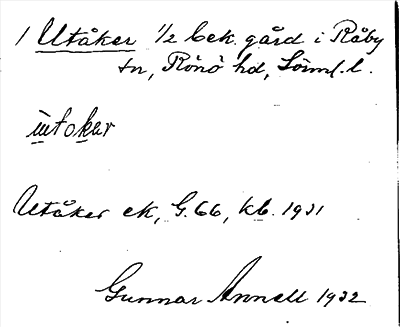 1 Utåker 1/2 bek. gård i Råby
sn, Rönö hd, Sörml. l.
ùtokar
Utåker ek, G. 66, kb. 1931
Gunnar Annell 1932